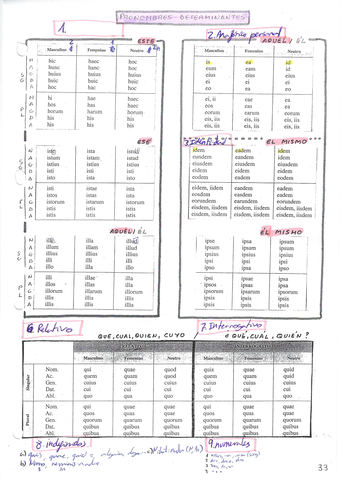 PRONOMBRES DETERMINANTES
1.
ESTE
Masculino Femenino Neutro
N hic haec hoc
A hunc hanc hoc
G huius huius huius
D huic huic huic
A hoc hac hoc
N hi hae haec
A hos has haec
G horum harum horum
D his his his
A his his his
ESE
N iste ista istud
A istum istam istud
G istius istius istius
D isti isti isti
A isto ista isto
N isti istae ista
A istos istas ista
G istorum istarum istorum
D istis istis istis
A istis istis istis
AQUEL / ÉL
N ille illa illud
A illum illam illud
G illius illius illius
D illi illi illi
A illo illa illo
N illi illae illa
A illos illas illa
G illorum illarum illorum
D illis illis illis
A illis illis illis
2. Anafórico personal
AQUEL / ÉL
Masculino Femenino Neutro
is ea id
eum eam id
eius eius eius
ei ei ei
eo ea eo
ei, ii eae ea
eos eas ea
eorum earum eorum
eis, iis eis, iis eis, iis
eis, iis eis, iis eis, iis
3. Identidad
EL MISMO
idem eadem idem
eundem eandem idem
eiusdem eiusdem eiusdem
eidem eidem eidem
eodem eadem eodem
eidem, iidem eaedem eadem
eosdem easdem eadem
eorundem earundem eorundem
eisdem, iisdem eisdem, iisdem eisdem, iisdem
eisdem, iisdem eisdem, iisdem eisdem, iisdem
EL MISMO
ipse ipsa ipsum
ipsum ipsam ipsum
ipsius ipsius ipsius
ipsi ipsi ipsi
ipso ipsa ipso
ipsi ipsae ipsa
ipsos ipsas ipsa
ipsorum ipsarum ipsorum
ipsis ipsis ipsis
ipsis ipsis ipsis
6. Relativo
QUE, CUAL, QUIEN, CUYO
7. Interrogativo
¿QUÉ, CUÁL, QUIÉN?
Masculino Femenino Neutro Masculino Femenino Neutro
Singular
Nom. qui quae quod quis quae quid
Ac. quem quam quod quem quam quid
Gen. cuius cuius cuius cuius cuius cuius
Dat. cui cui cui cui cui cui
Abl. quo qua quo quo qua quo
Plural
Nom. qui quae quae qui quae quae
Ac. quos quas quae quos quas quae
Gen. quorum quarum quorum quorum quarum quorum
Dat. quibus quibus quibus quibus quibus quibus
Abl. quibus quibus quibus quibus quibus quibus
8. Indefinidos
9. numerales
a)
b)
33